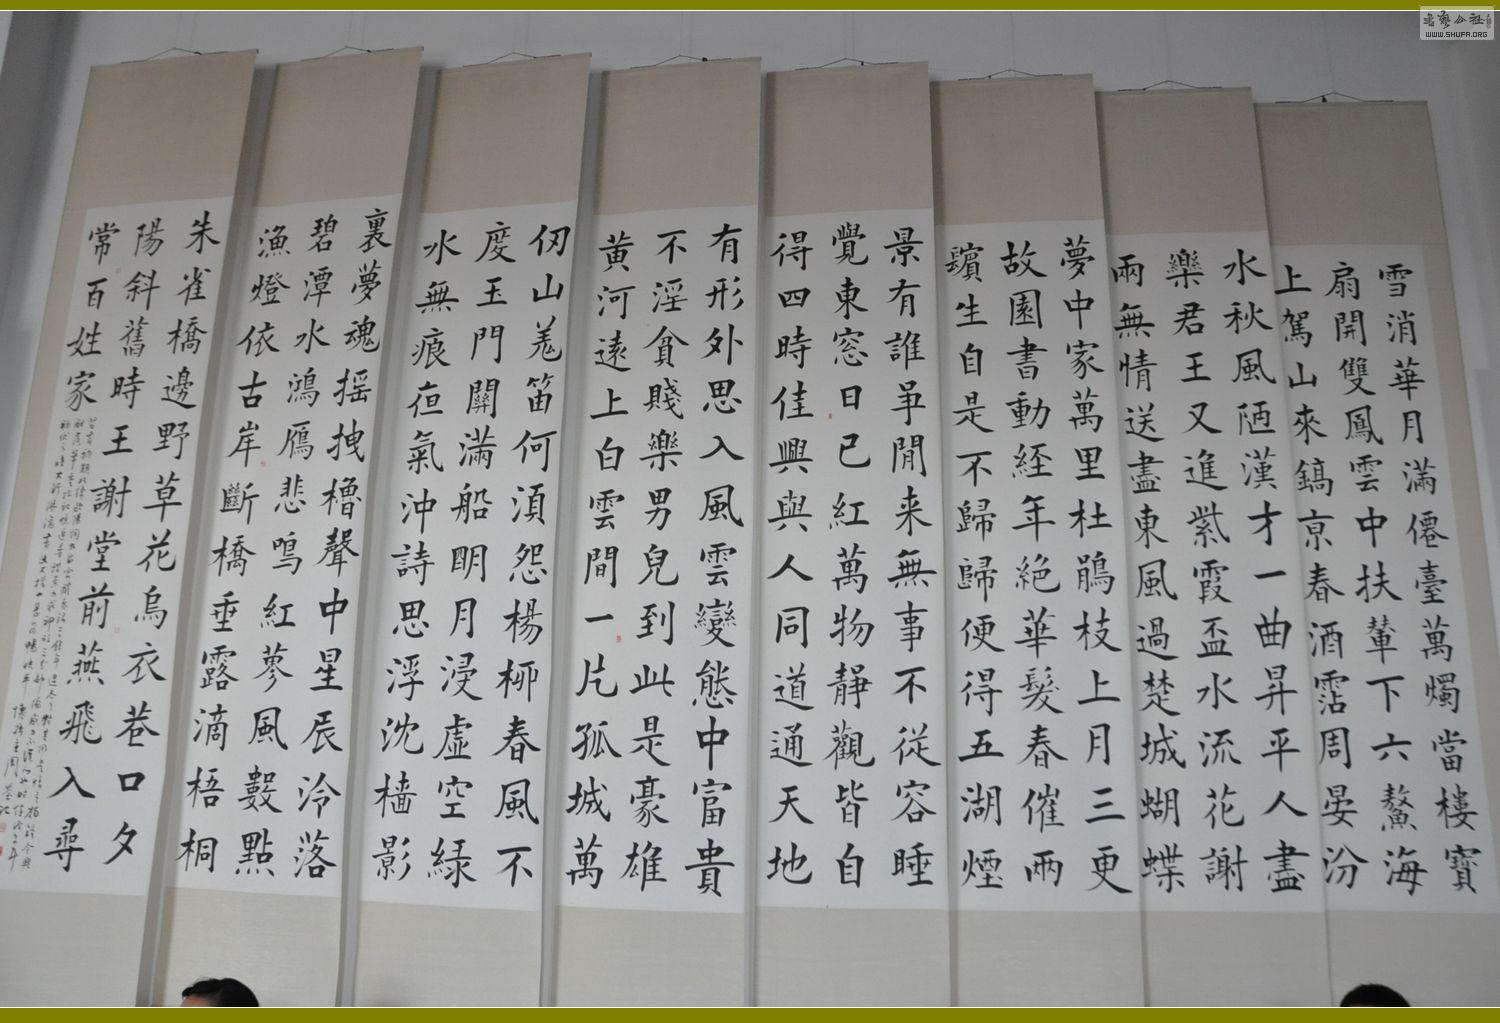 雪消華月滿僊臺萬燭當樓寶
扇開雙鳳雲中扶輦下六鰲海
上駕山來鎬京春酒霑周宴汾
水秋風陋漢才一曲昇平人盡
樂君王又進紫霞盃水流花謝
兩無情送盡東風過楚城蝴蝶
夢中家萬里杜鵑枝上月三更
故園書動經年絕華髮春催兩
鬢生自是不歸歸便得五湖煙
景有誰爭閒来無事不從容睡
覺東窓日已紅萬物靜觀皆自
得四時佳興與人同道通天地
有形外思入風雲變態中富貴
不淫貪賤樂男兒到此是豪雄
黃河遠上白雲間一片孤城萬
仞山羌笛何湏怨楊柳春風不
度玉門關滿船明月浸虛空綠
水無痕夜氣沖詩思浮沈檣影
裏夢魂摇拽櫓聲中星辰泠落
碧潭水鴻雁悲鳴紅蓼風數點
漁燈依古岸斷橋垂露滴梧桐
朱雀橋邊野草花烏衣巷口夕
陽斜舊時王謝堂前燕飛入尋
常百姓家
WWW.SHUFA.ORG